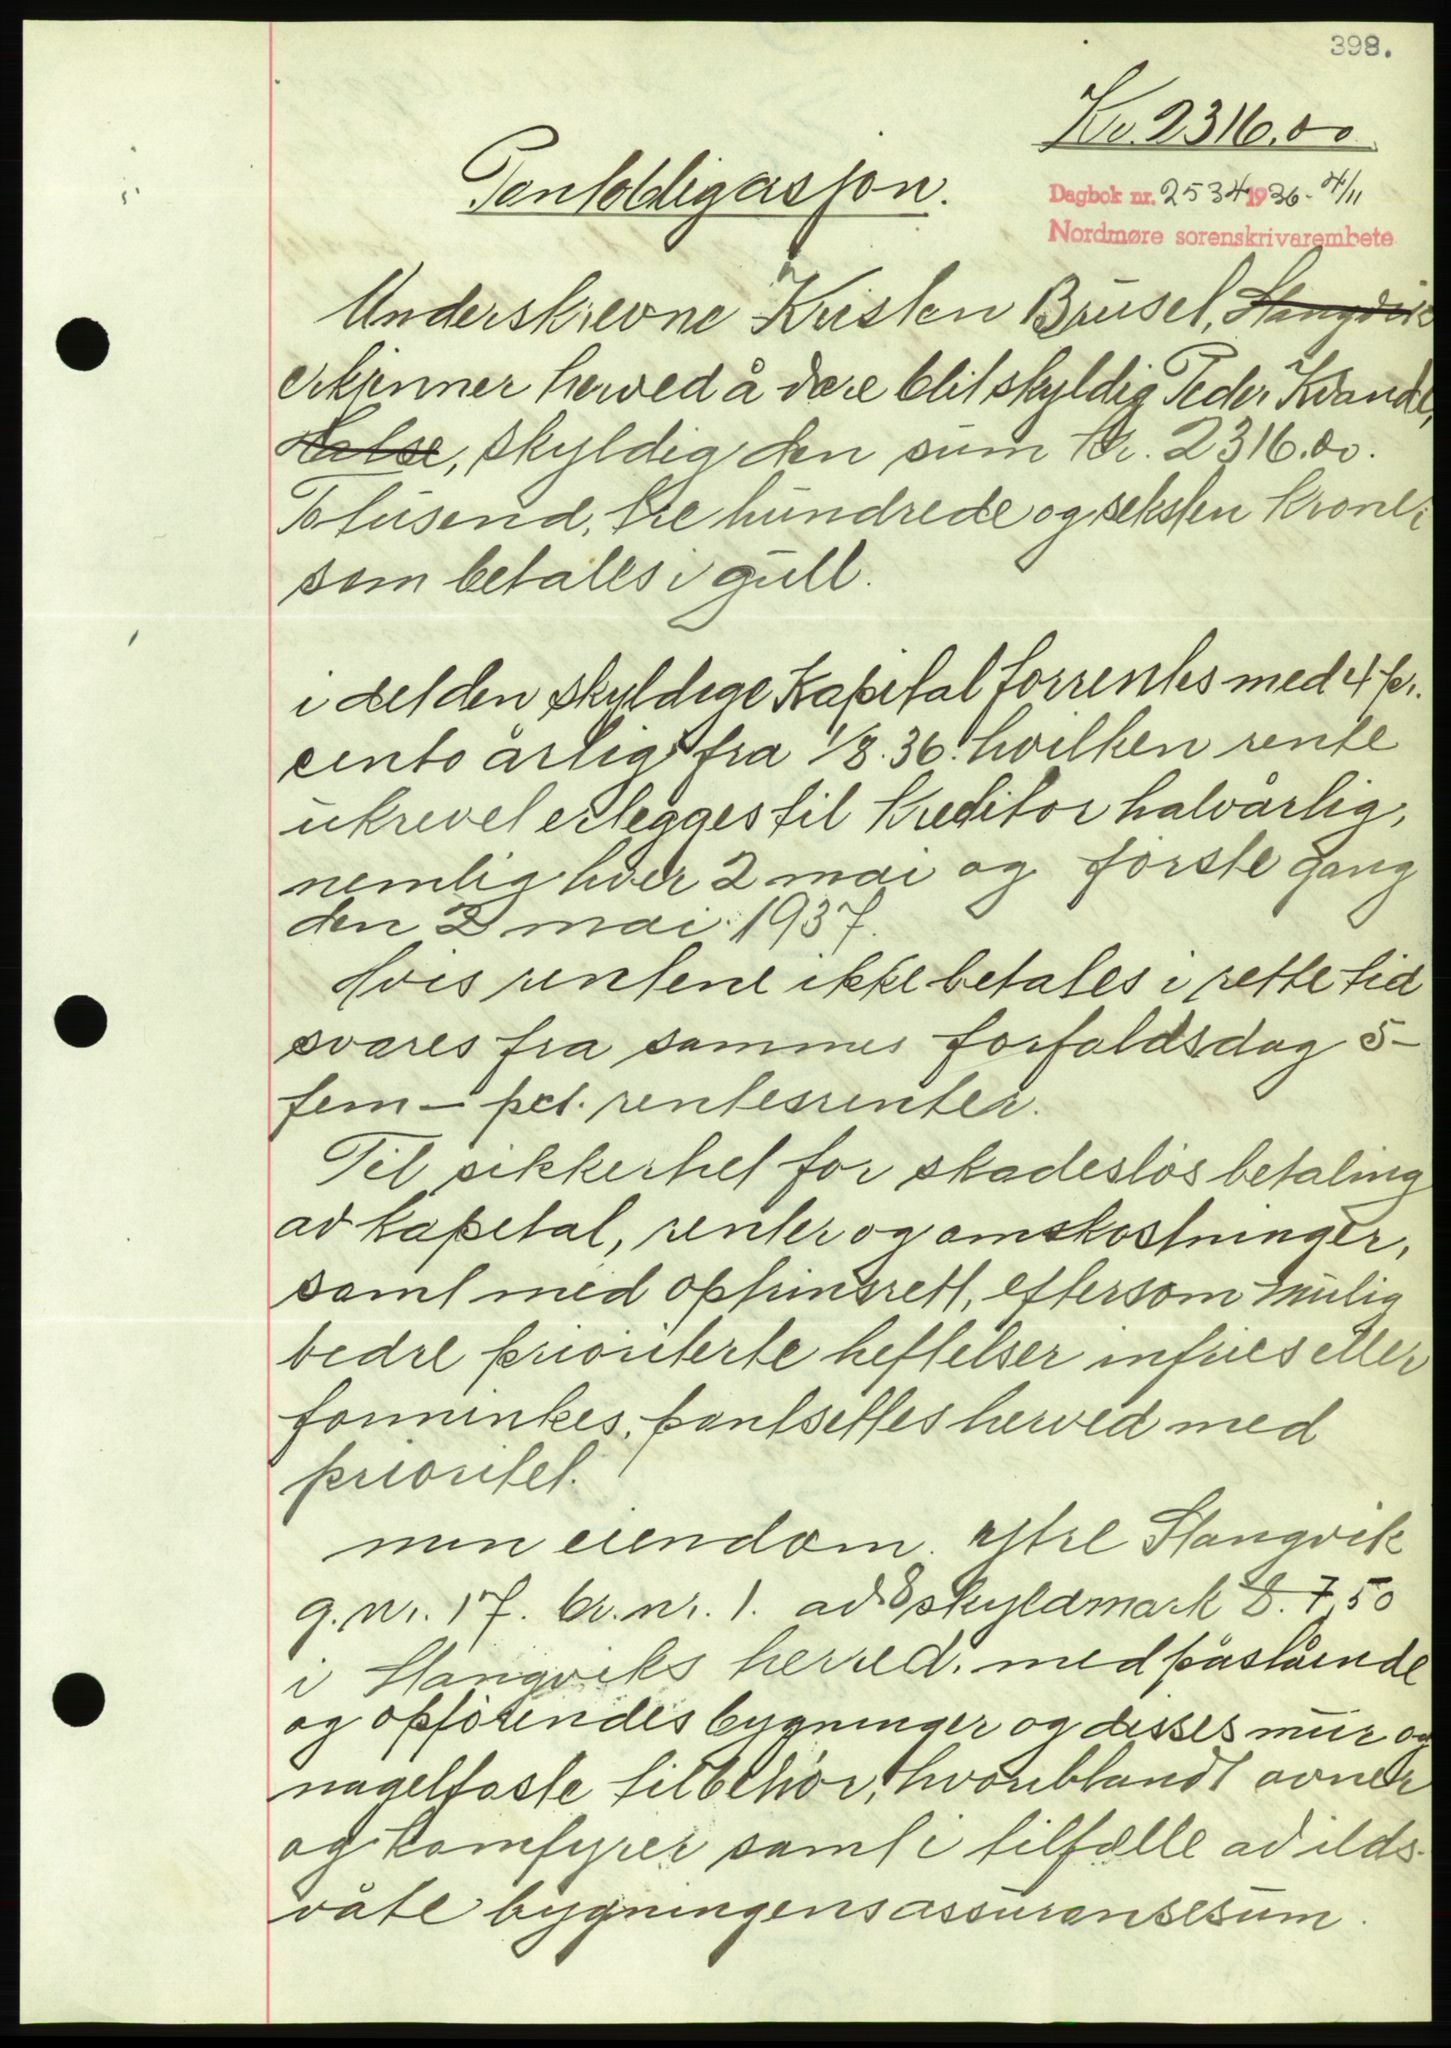 398.
Kr. 2316.00
Pantobligasjon.
Dagbok nr. 2534 1936 - 4/11
Nordmøre sorenskrivarembete
Underskrevne Kristen Brusel, Stangvik
erkjenner herved å være blit skyldig Peder Kvande,
Halse, skyldig den sum kr. 2316.00.
Totusend, tre hundrede og seksten kroner
som betales i gull.
i det den skyldige Kapital forrentes med 4 pr.
cento årlig fra 1/8.36. hvilken rente
ukrevet erlegges til Kreditor halvårlig,
nemlig hver 2 mai og første gang
den 2 mai 1937.
Hvis rentene ikke betales i rette tid
svares fra sammes forfaldsdag 5-
fem - pct. rentesrenter.
Til sikkerhet for skadesløs betaling
av kapital, renter og omskostninger,
samt med optrinsrett, eftersom mulig
bedre prioriterte heftelser infries eller
forminkes, pantsettes herved med
prioritet.
min eiendom ytre Stangvik
g.nr. 17. br.nr. 1. av skyldmark 8. 7,50
i Stangviks herred. med påstående
og opførendes bygninger og disses mur og
nagelfaste tilbehør, hvoriblandt ovner
og komfyrer samt i tilfælle av ilds-
våte bygningens assuransesum.